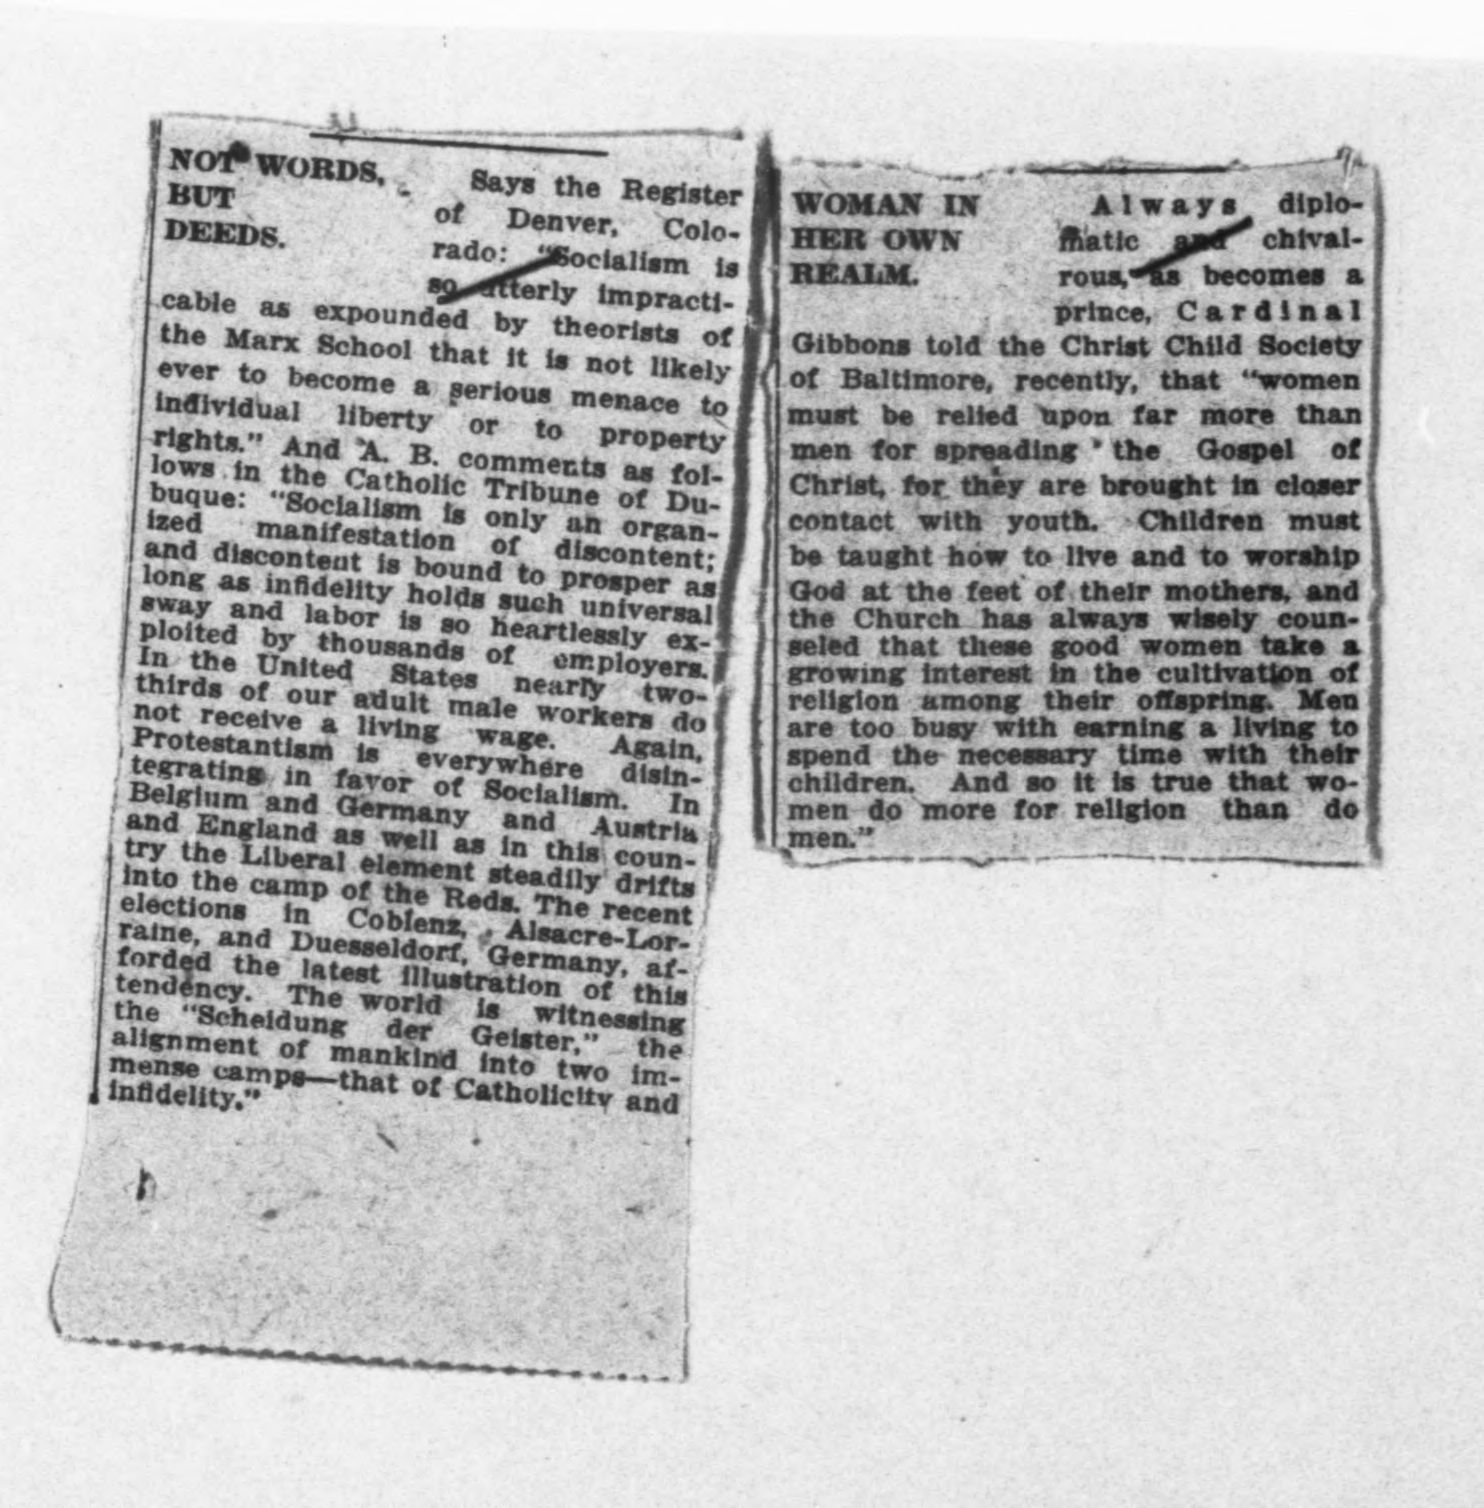 NOT WORDS,
BUT
DEEDS.
Says the Register
of Denver, Colo-
rado: "Socialism is
so utterly impracti-
cable as expounded by theorists of
the Marx School that it is not likely
ever to become a serious menace to
individual liberty or to property
rights." And A. B. comments as fol-
lows in the Catholic Tribune of Du-
buque: "Socialism is only an organ-
ized manifestation of discontent;
and discontent is bound to prosper as
long as infidelity holds such universal
sway and labor is so heartlessly ex-
ploited by thousands of employers.
In the United States nearly two-
thirds of our adult male workers do
not receive a living wage. Again,
Protestantism is everywhere disin-
tegrating in favor of Socialism. In
Belgium and Germany and Austria
and England as well as in this coun-
try the Liberal element steadily drifts
into the camp of the Reds. The recent
elections in Coblenz, Alsacre-Lor-
raine, and Duesseldorf, Germany, af-
forded the latest illustration of this
tendency. The world is witnessing
the "Scheidung der Geister," the
alignment of mankind into two im-
mense camps—that of Catholicity and
infidelity."
WOMAN IN
HER OWN
REALM.
Always diplo-
matic and chival-
rous, as becomes a
prince, Cardinal
Gibbons told the Christ Child Society
of Baltimore, recently, that "women
must be relied upon far more than
men for spreading the Gospel of
Christ, for they are brought in closer
contact with youth. Children must
be taught how to live and to worship
God at the feet of their mothers, and
the Church has always wisely coun-
seled that these good women take a
growing interest in the cultivation of
religion among their offspring. Men
are too busy with earning a living to
spend the necessary time with their
children. And so it is true that wo-
men do more for religion than do
men."